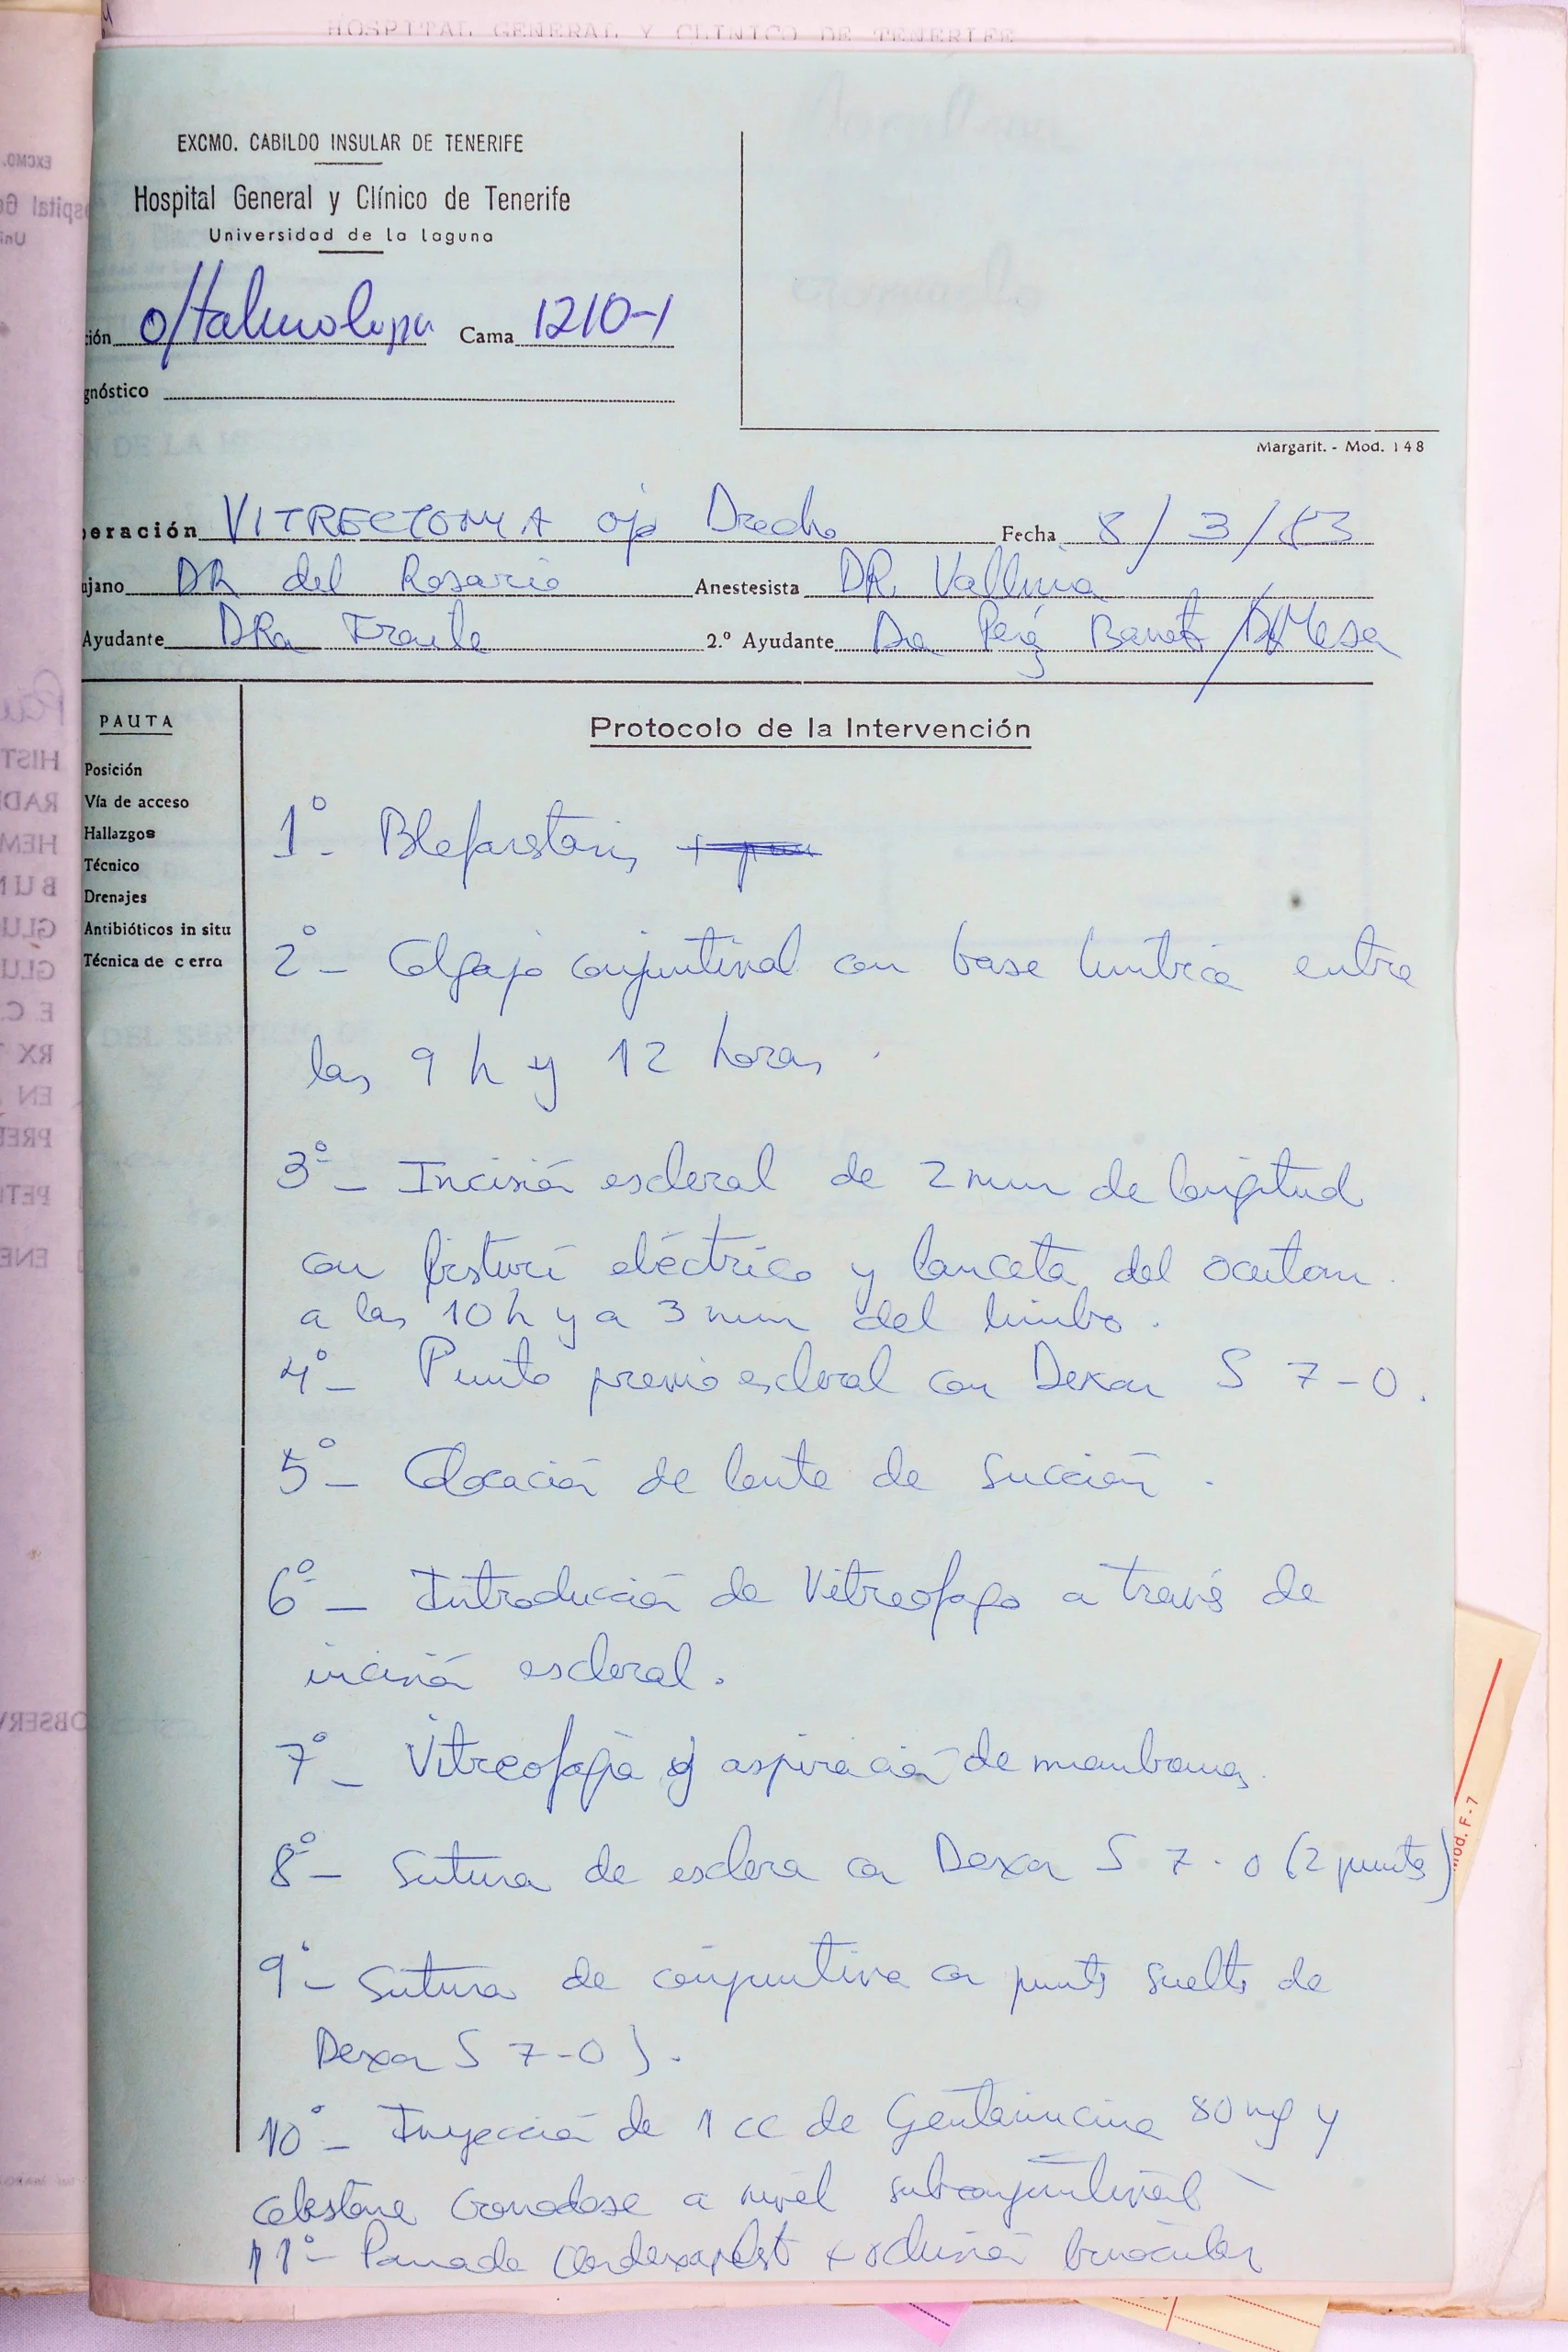 HOSPITAL GENERAL Y CLINICO DE TENERIFE
EXCMO. CABILDO INSULAR DE TENERIFE
Hospital General y Clínico de Tenerife
Universidad de La Laguna
ción oftalmología Cama 1210-1
gnóstico
Margarit. - Mod. 148
peración VITRECTOMIA ojo Drecho Fecha 8/3/83
ujano DR del Rosario Anestesista DR. Vallina
Ayudante DRa Fraile 2.º Ayudante Dra Perez / Dr Mesa
PAUTA
Protocolo de la Intervención
Posición
Vía de acceso
Hallazgos
Técnico
Drenajes
Antibióticos in situ
Técnica de cerra
1º- Blefarostasis
2º- Colgajo conjuntival con base limbica entre
las 9 h y 12 horas.
3º- Incisión escleral de 2 mm de longitud
con bisturí eléctrico y lanceta del ocutom
a las 10 h y a 3 mm del limbo.
4º- Punto previo escleral con Dexon S 7-0.
5º- Colocación de lente de succión.
6º- Introducción de Vitreofago a través de
incisión escleral.
7º- Vitreofagia y aspiración de membranas.
8º- Sutura de esclera con Dexon S 7-0 (2 puntos)
9º- Sutura de conjuntiva con puntos sueltos de
Dexon S 7-0).
10º- Inyección de 1 cc de Gentamicina 80 mg y
celestone cronodose a nivel subconjuntival
11º- Pomada + oclusión binocular
Mod. F-7